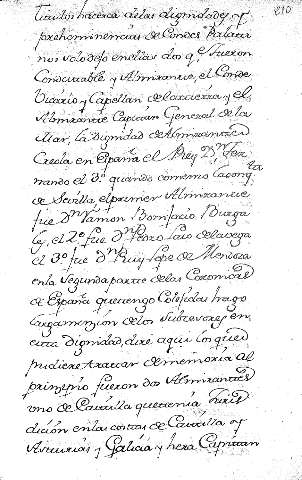 810
titulos hacerca de las dignidades y
prehominencias de Condes Palati
nos solo digo en ellas dos qe. fueron
Condestable y Almirante, el Conde
Vicario y Capellan de la cierra y el
Almirante Capitan General de la
Mar, la Dignidad de Almirante
Creola en España el Rey Dn. Fer
nando el 3º quando comenso la conqta.
de Sevilla, el primer Almirante
fue Dn. Ramon Bonifacio Burga
les, el 2º fue Dn. Pero Laso de la vega
el 3º fue Dn. Ruy Lope de Mendoza
en la segunda parte de las Coronicas
de España que tengo Colejidas hago
larga menzion de los subcesores en
esta dignidad, dire aqui los que
pudiere, traicar de memoria al
principio fueron dos Almirantes
uno de Castilla que tenia Juris
dicion en las costas de Castilla y
Asturias y Galicia y hera Capitan